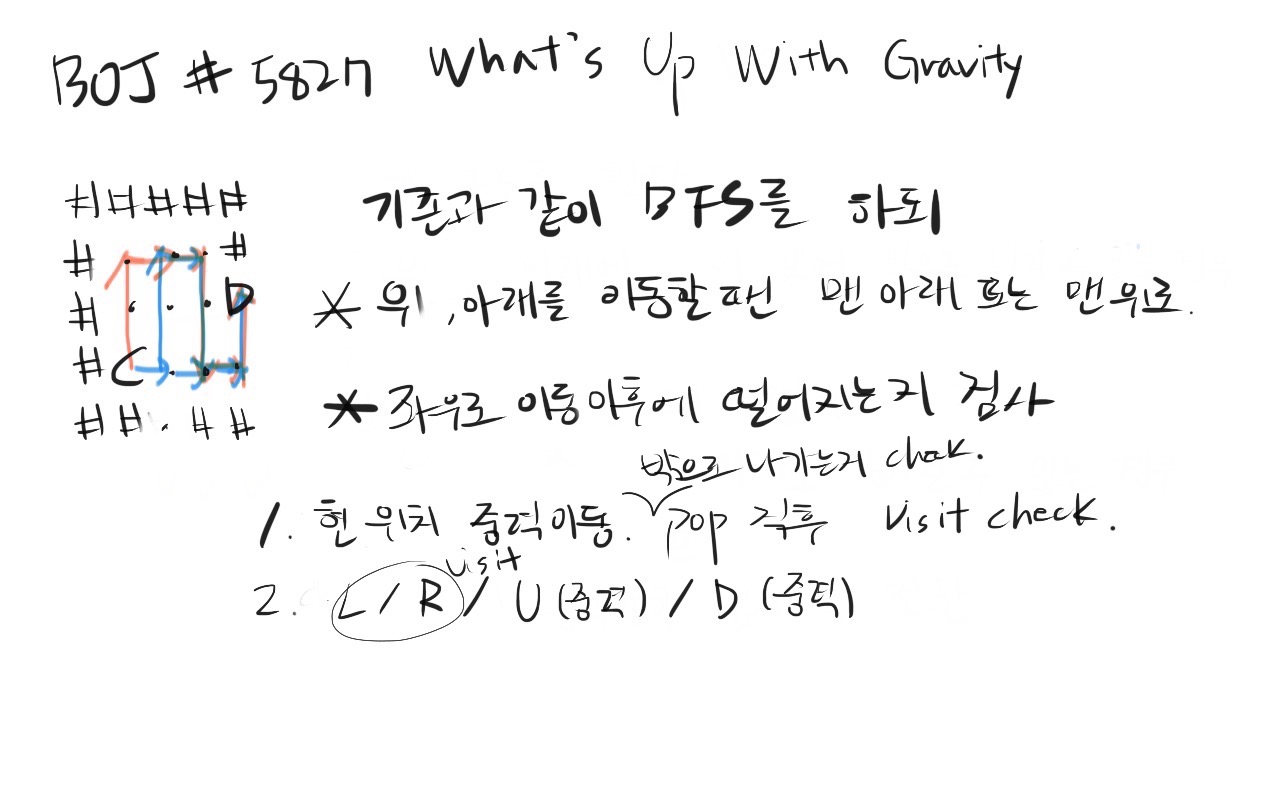 BOJ # 5827 What's Up With Gravity
#####
# . . . #
# . . . D
# C . . .
## . ##
기존과 같이 BFS를 하되
* 위, 아래를 이동할 땐 맨 아래 또는 맨 위로.
* 좌우로 이동 이후에 떨어지는지 검사
밖으로 나가는거 chek.
1. 현 위치 중력이동. pop 직후 visit check.
visit
2. L / R / U (중력) / D (중력)